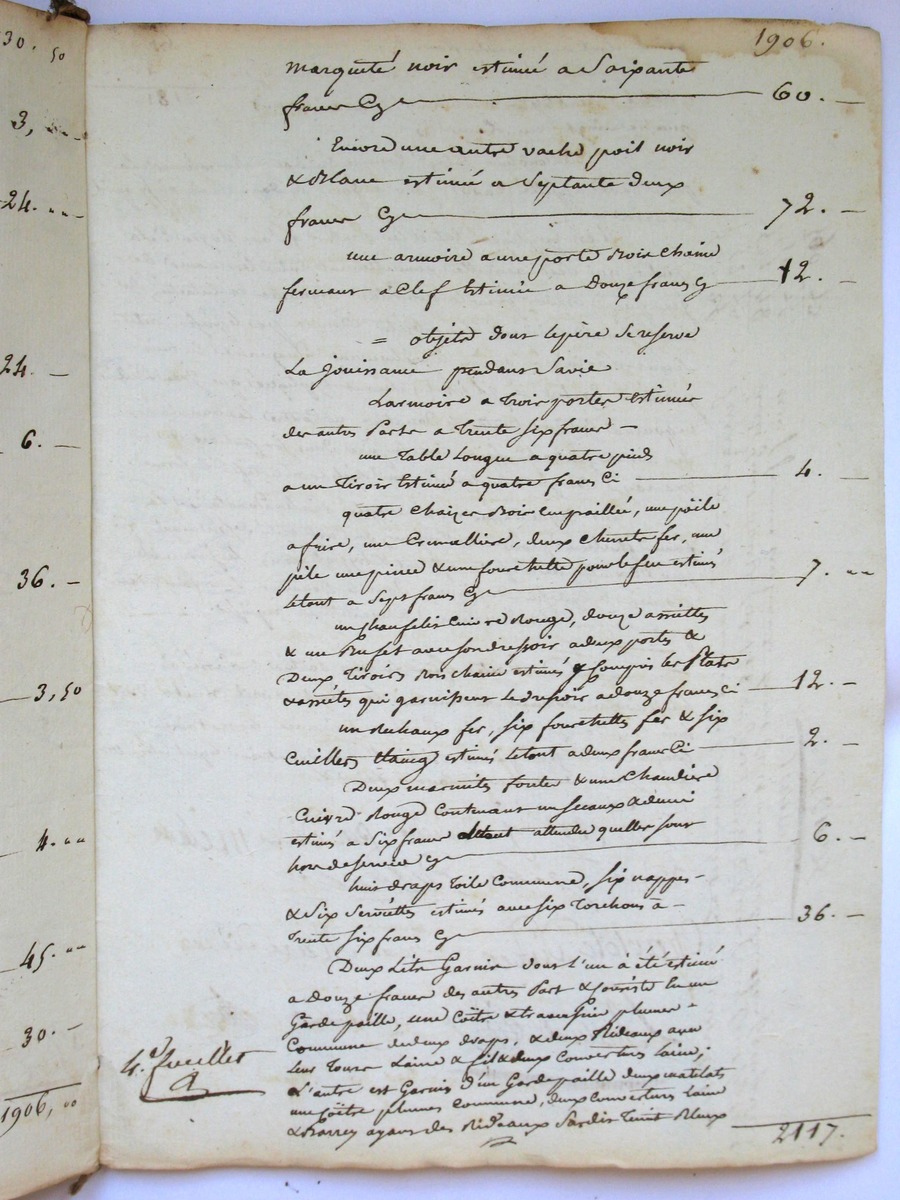 30. 50
3, "
24. "
24. —
6. —
36. —
3, 50
4. "
45. "
30. —
1906, "
1906.
marqueté noir estimé a Soixante
francs Cy — 60. —
Encore une autre vache poil noir
& Blanc estimée a Septante deux
francs Cy — 72. —
une armoire a une porte Bois chaine
fermant a Clef Estimée a Douze francs Cy — 12. —
= objets dont le père se reserve
La jouissance pendant Sa vie
L'armoire a Trois portes estimée
des autres Parts a Trente Six francs —
une Table Longue a quatre pieds
a un Tiroir Estimé a quatre francs Ci — 4. —
quatre Chaizes Bois Empaillée, une poële
a frire, une Cremalliere, deux Chenets fer, une
pêle une pince & une fourchette pour le feu estimés
Letout a Sept francs Cy — 7. "
un Cuivre Rouge, douze assiettes
& un Buffet avec son dressoir a deux portes &
Deux Tiroirs Bois chaine estimés & Compris les Plats
& assiétes qui garnissent le dressoir a douze francs Ci — 12. —
un Rechaux fer, six fourchettes fer & six
Cuilliers estimés Letout a deux francs Ci — 2. —
Deux marmites fontes & une Chaudiere
Cuivre Rouge Contenant un Seaux & demi
estimés a Six francs attendu quelles sont
hors de service Cy — 6. —
huit draps Toile Commune, six nappes —
& Six Serviettes estimés avec six Torchons a —
Trente Six francs Cy — 36 —
Deux Lits Garnis dont l'un à été estimé
a Douze francs des autres Part & Consiste En un
Garde paille, une Coëtre & traversin plumes =
Commune deux draps, & deux Rideaux avec
Leur Tours Laine & fil & deux Couvertures Laine;
L'autre est Garnis d'un Gardepaille deux matelats
une Coëtre plumes Commune, deux Couvertures Laine
& Barrez ayant des Rideaux Teint Bleux
2117.
4.e feuillet